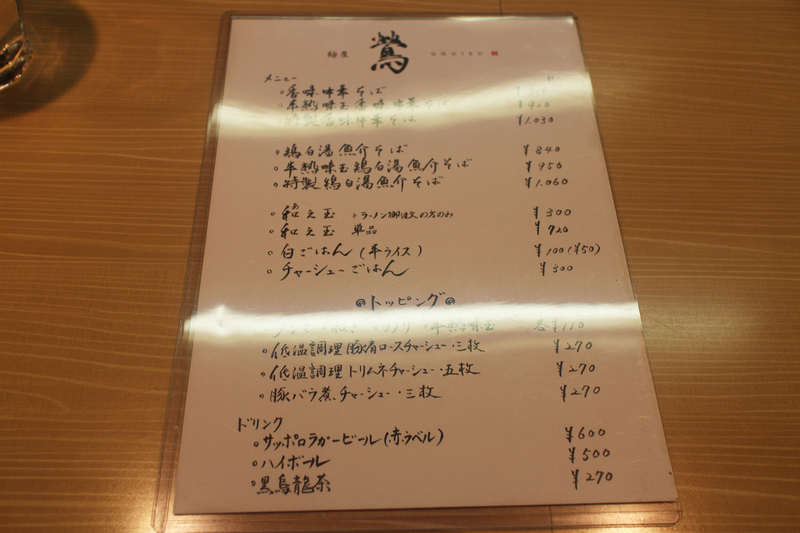 麺屋 鶯 uguisu
メニュー
・香味中華そば
・半熟味玉香味中華そば ¥920
特製香味中華そば ¥1.030
・鶏白湯魚介そば ¥840
・半熟味玉鶏白湯魚介そば ¥950
・特製鶏白湯魚介そば ¥1.060
・和え玉 ※ラーメン御注文の方のみ ¥300
・和え玉 単品 ¥720
・白ごはん(半ライス) ¥100(¥50)
・チャーシューごはん ¥300
◎トッピング◎
半熟味玉 各¥110
・低温調理豚肩ロースチャーシュー・三枚 ¥270
・低温調理トリムネチャーシュー・五枚 ¥270
・豚バラ煮チャーシュー・三枚 ¥270
ドリンク
・サッポロラガービール(赤ラベル) ¥600
・ハイボール ¥500
・黒烏龍茶 ¥270